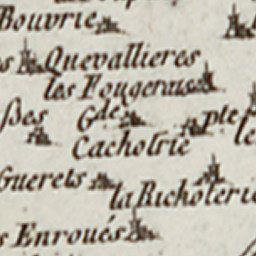 Bouvrie
Quevallieres
les Fougerais
Gde pte
Cachotrie
Guerets
la Richoterie
s Enroués